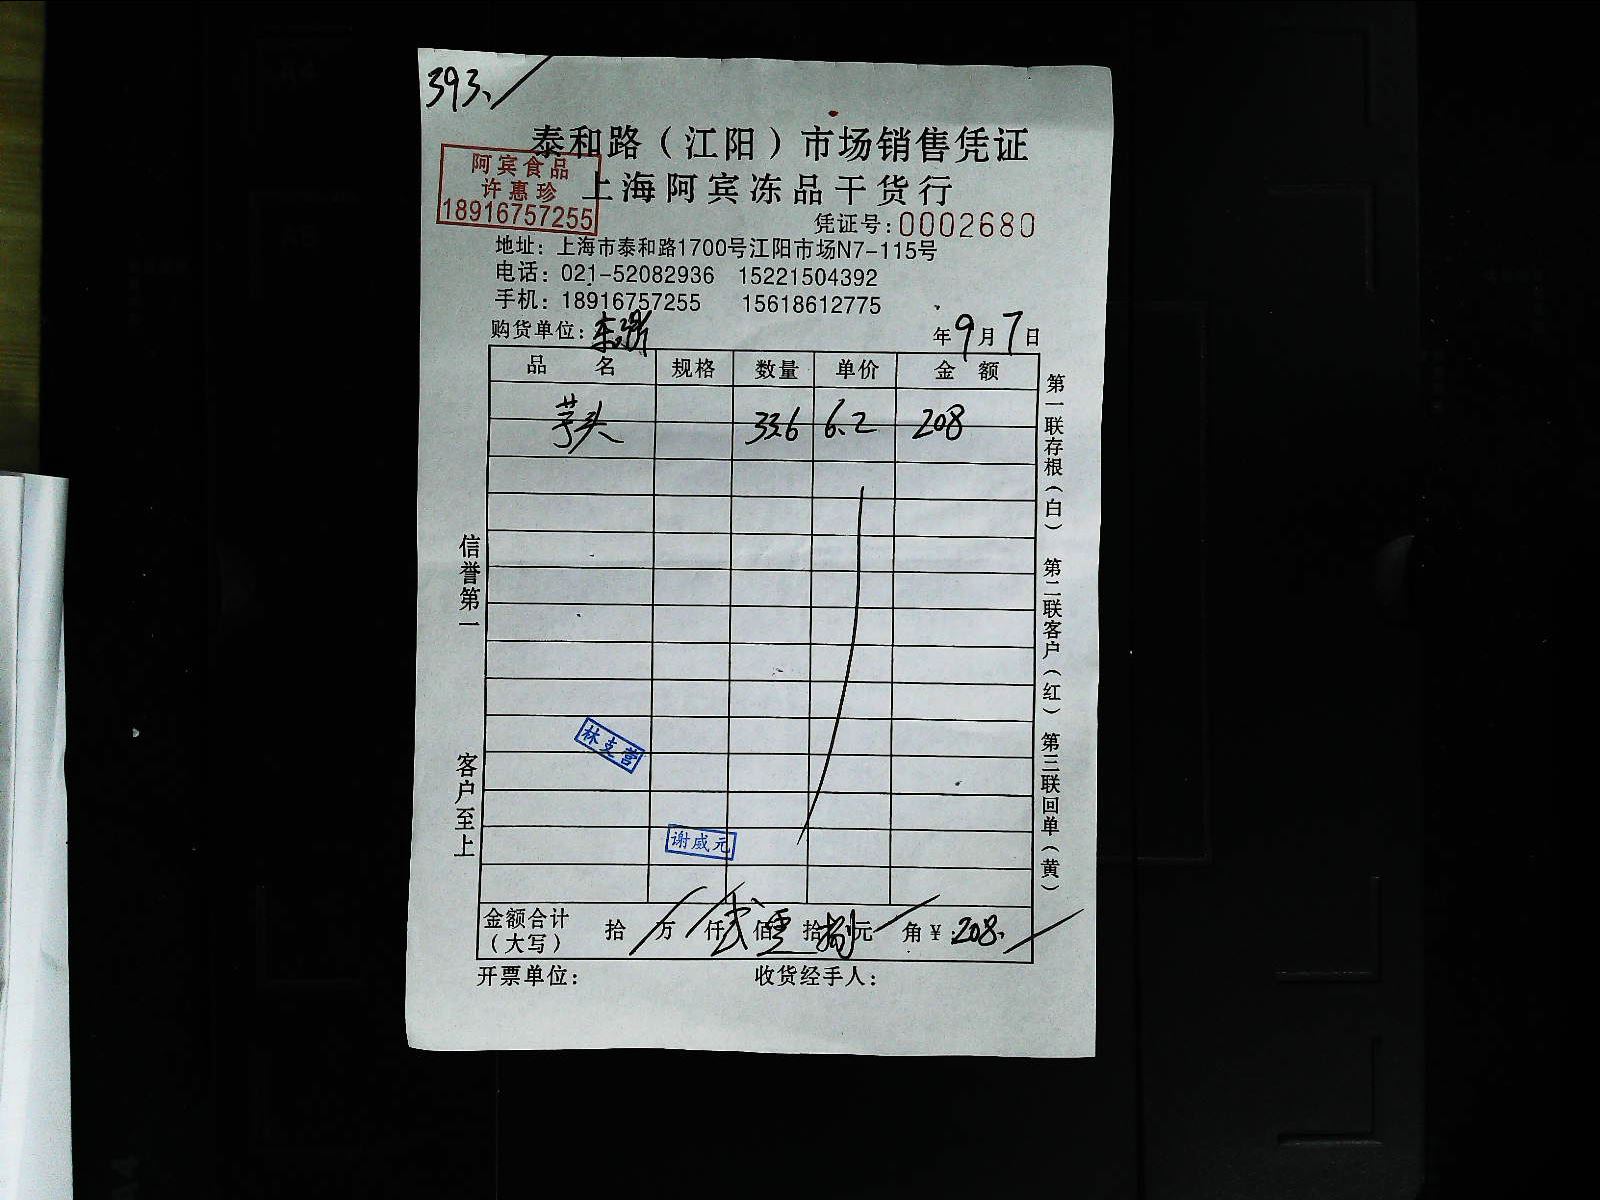 393.
泰和路（江阳）市场销售凭证
阿宾食品
许惠珍
18916757255
上海阿宾冻品干货行
凭证号:0002680
地址：上海市泰和路1700号江阳市场N7-115号
电话：021-52082936 15221504392
手机：18916757255 15618612775
购货单位:
年9月7日
品名 规格 数量 单价 金额
芋头 33.6 6.2 208
信誉第一
客户至上
第一联存根（白） 第二联客户（红） 第三联回单（黄）
林支营
谢咸元
金额合计（大写） 拾 万 仟 贰佰零拾捌元 角￥:208.
开票单位: 收货经手人: